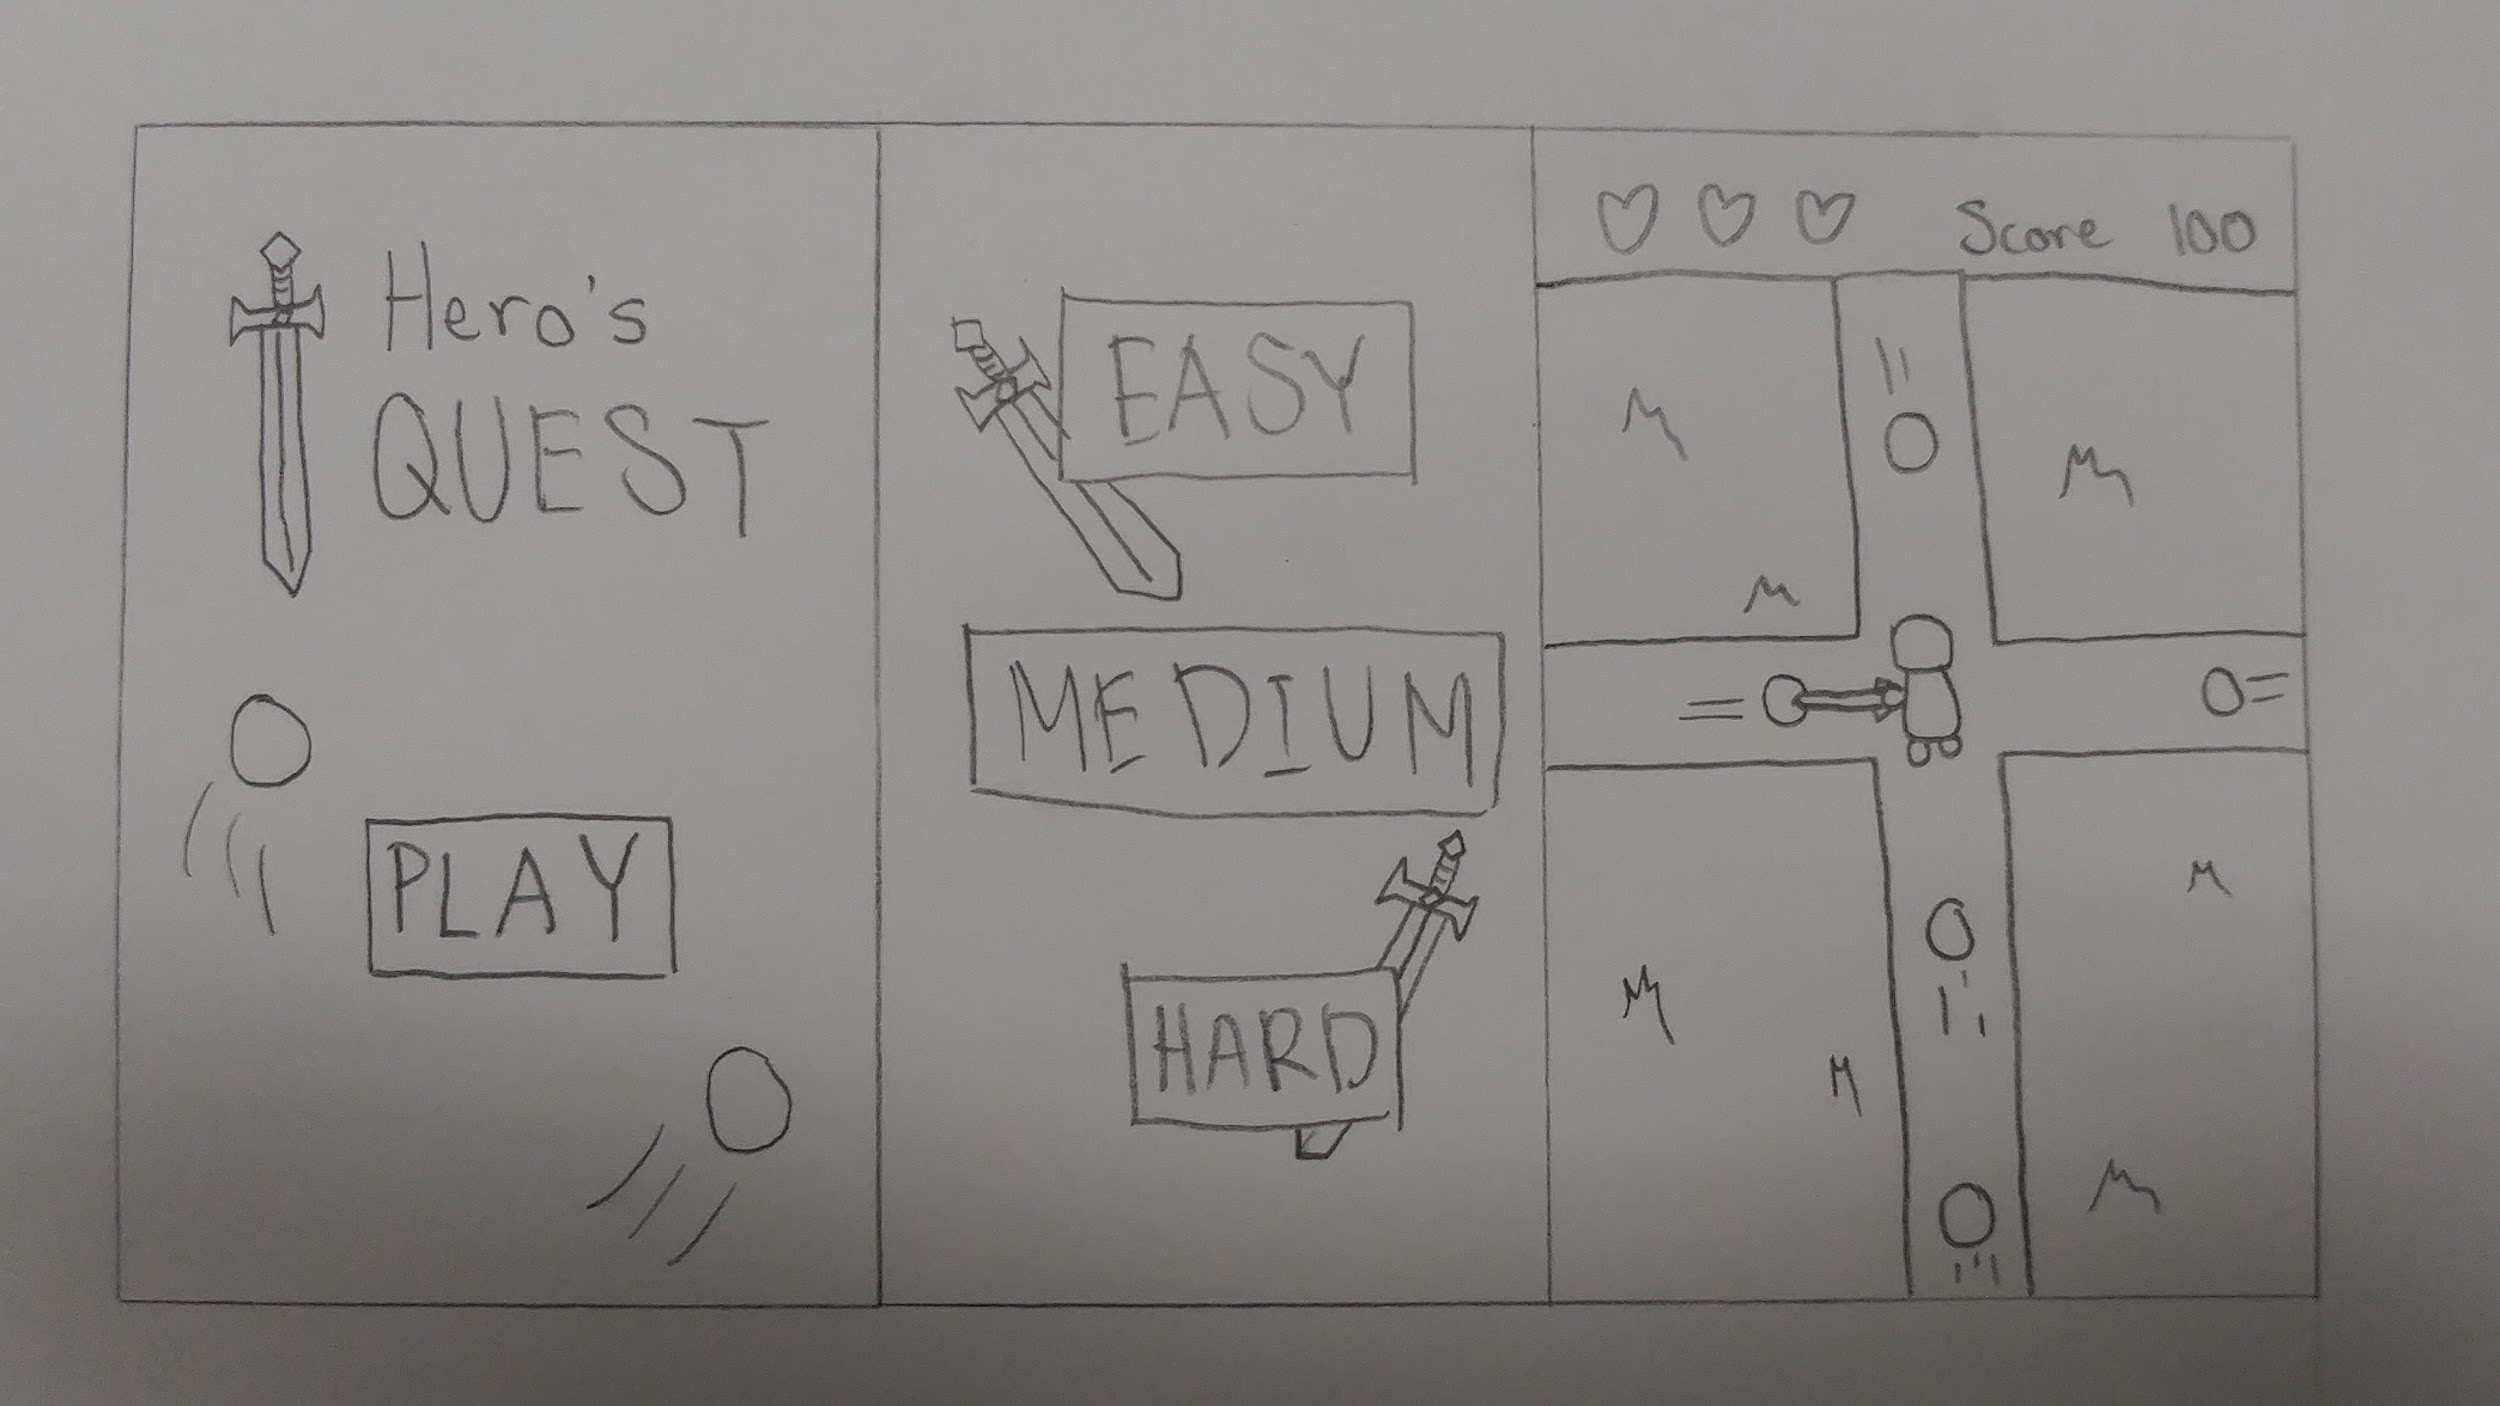 Hero's
QUEST
PLAY
EASY
MEDIUM
HARD
Score 100